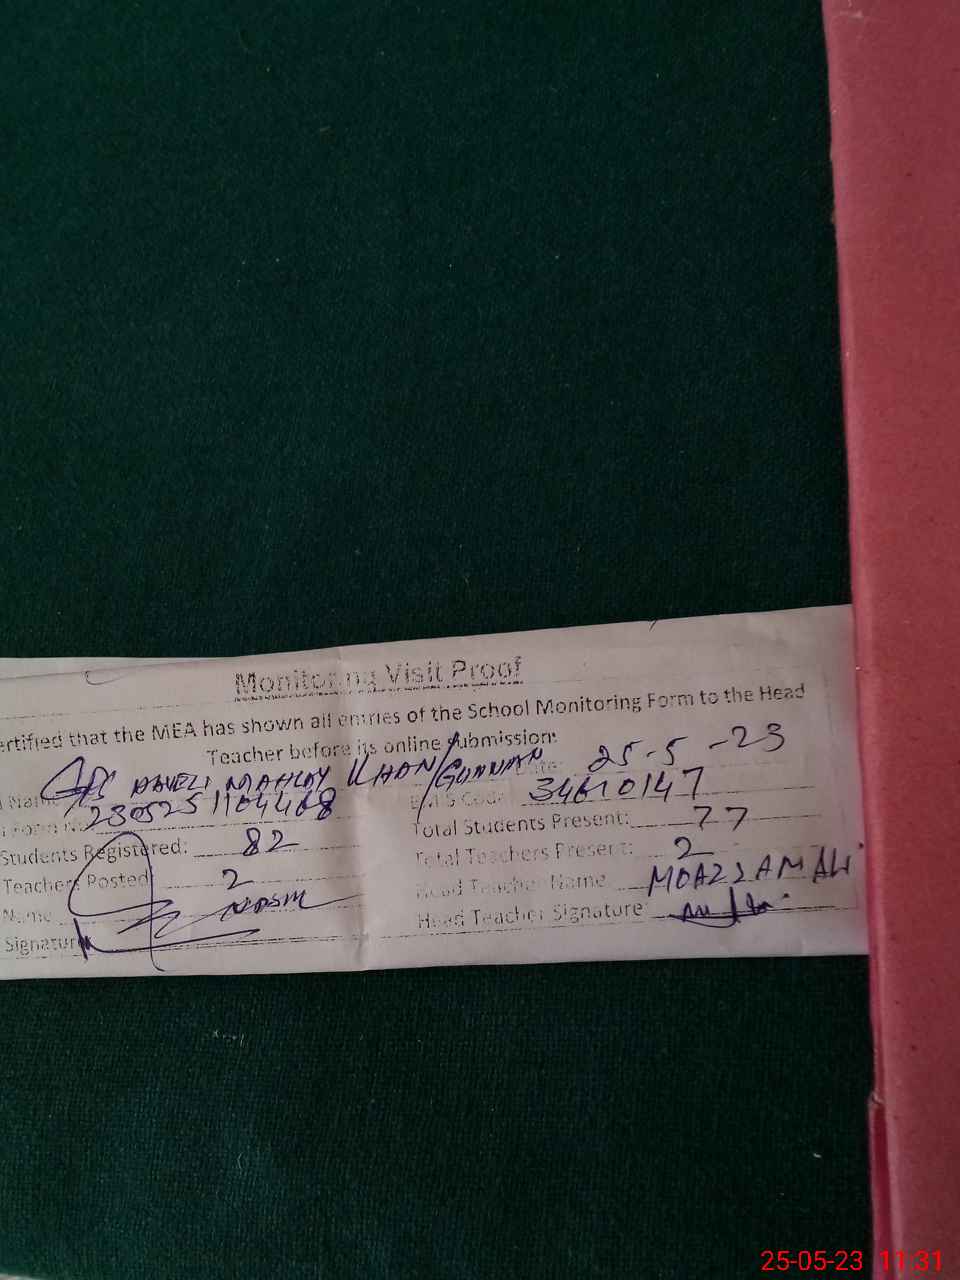 Monitoring Visit Proof
ertified that the MEA has shown all entries of the School Monitoring Form to the Head
Teacher before its online submission:
Name GPS HAVELI KHAN/ Date: 25-5-23
Form No 230525 1104468 EMIS Code: 34610147
Students Registered: 82 Total Students Present: 77
Teachers Posted 2 Total Teachers Present: 2
Name Head Teacher Name MOAZZAM ALI
Signature Head Teacher Signature
25-05-23 11:31